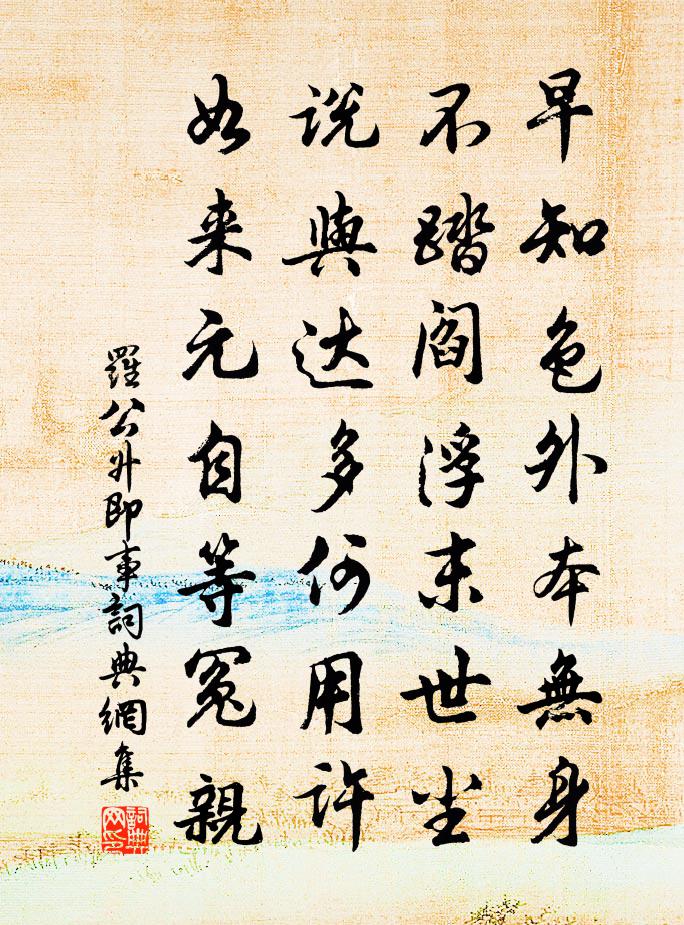 早知色外本無身
不踏閻浮末世尘
說與达多何用許
如来元自等冤親
羅公升即事詞典網集
詞典网印